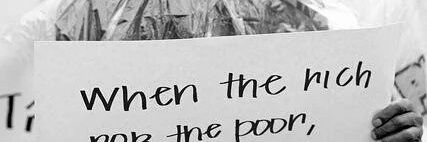 When the rich
rob the poor,